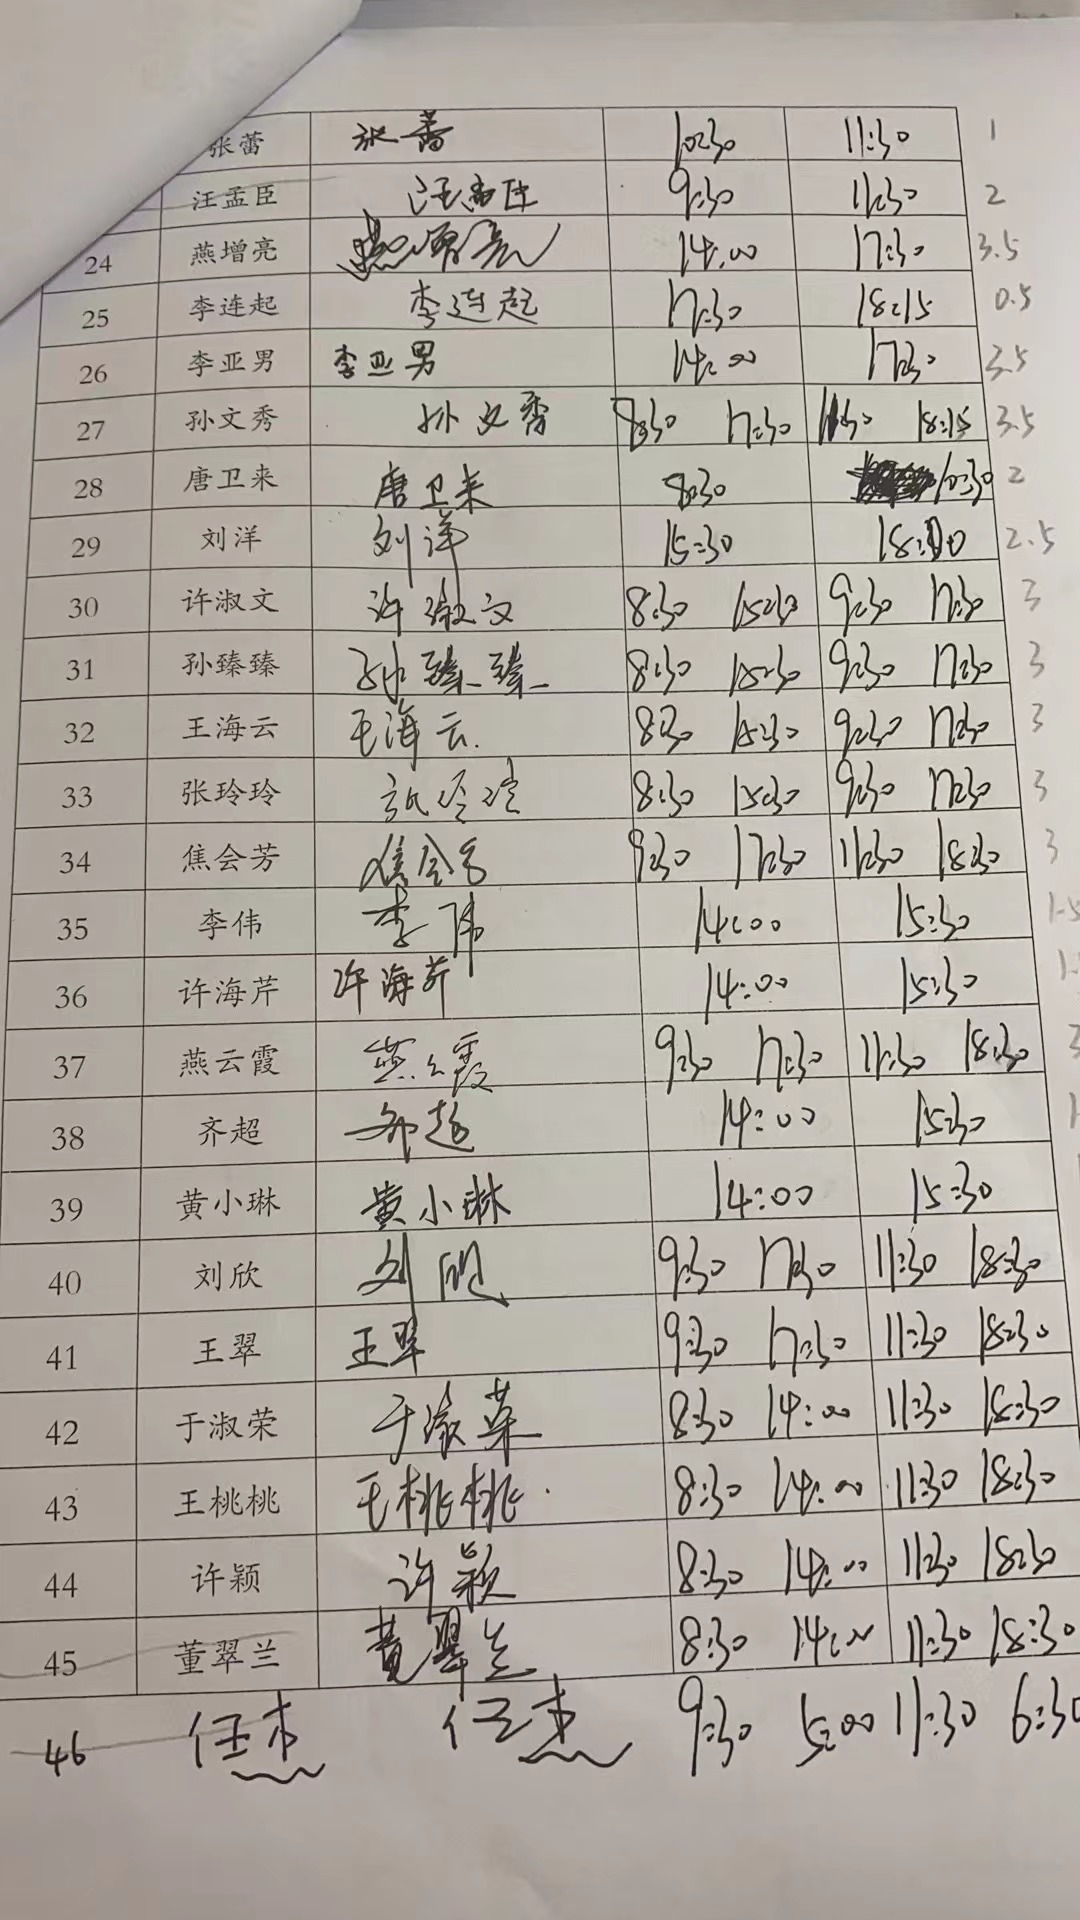 张蕾 张蕾 10:30 11:30 1
汪孟臣 汪孟臣 9:30 11:30 2
24 燕增亮 燕增亮 14:00 17:30 3.5
25 李连起 李连起 17:30 18:15 0.5
26 李亚男 李亚男 14:00 17:30 3.5
27 孙文秀 孙文秀 8:30 17:30 11:30 18:15 3.5
28 唐卫来 唐卫来 8:30 10:30 2
29 刘洋 刘洋 15:30 18:00 2.5
30 许淑文 许淑文 8:30 15:30 9:30 17:30 3
31 孙臻臻 孙臻臻 8:30 15:30 9:30 17:30 3
32 王海云 王海云 8:30 15:30 9:30 17:30 3
33 张玲玲 张玲玲 8:30 15:30 9:30 17:30 3
34 焦会芳 焦会芳 9:30 17:30 11:30 18:30 3
35 李伟 李伟 14:00 15:30 1.5
36 许海芹 许海芹 14:00 15:30 1.
37 燕云霞 燕云霞 9:30 17:30 11:30 18:30 3
38 齐超 齐超 14:00 15:30 1
39 黄小琳 黄小琳 14:00 15:30
40 刘欣 刘欣 9:30 17:30 11:30 18:30
41 王翠 王翠 9:30 17:30 11:30 18:30
42 于淑荣 于淑荣 8:30 14:00 11:30 18:30
43 王桃桃 王桃桃 8:30 14:00 11:30 18:30
44 许颖 许颖 8:30 14:00 11:30 18:30
45 董翠兰 董翠兰 8:30 14:00 11:30 18:30
46 任杰 任杰 9:30 5:00 11:30 6:30